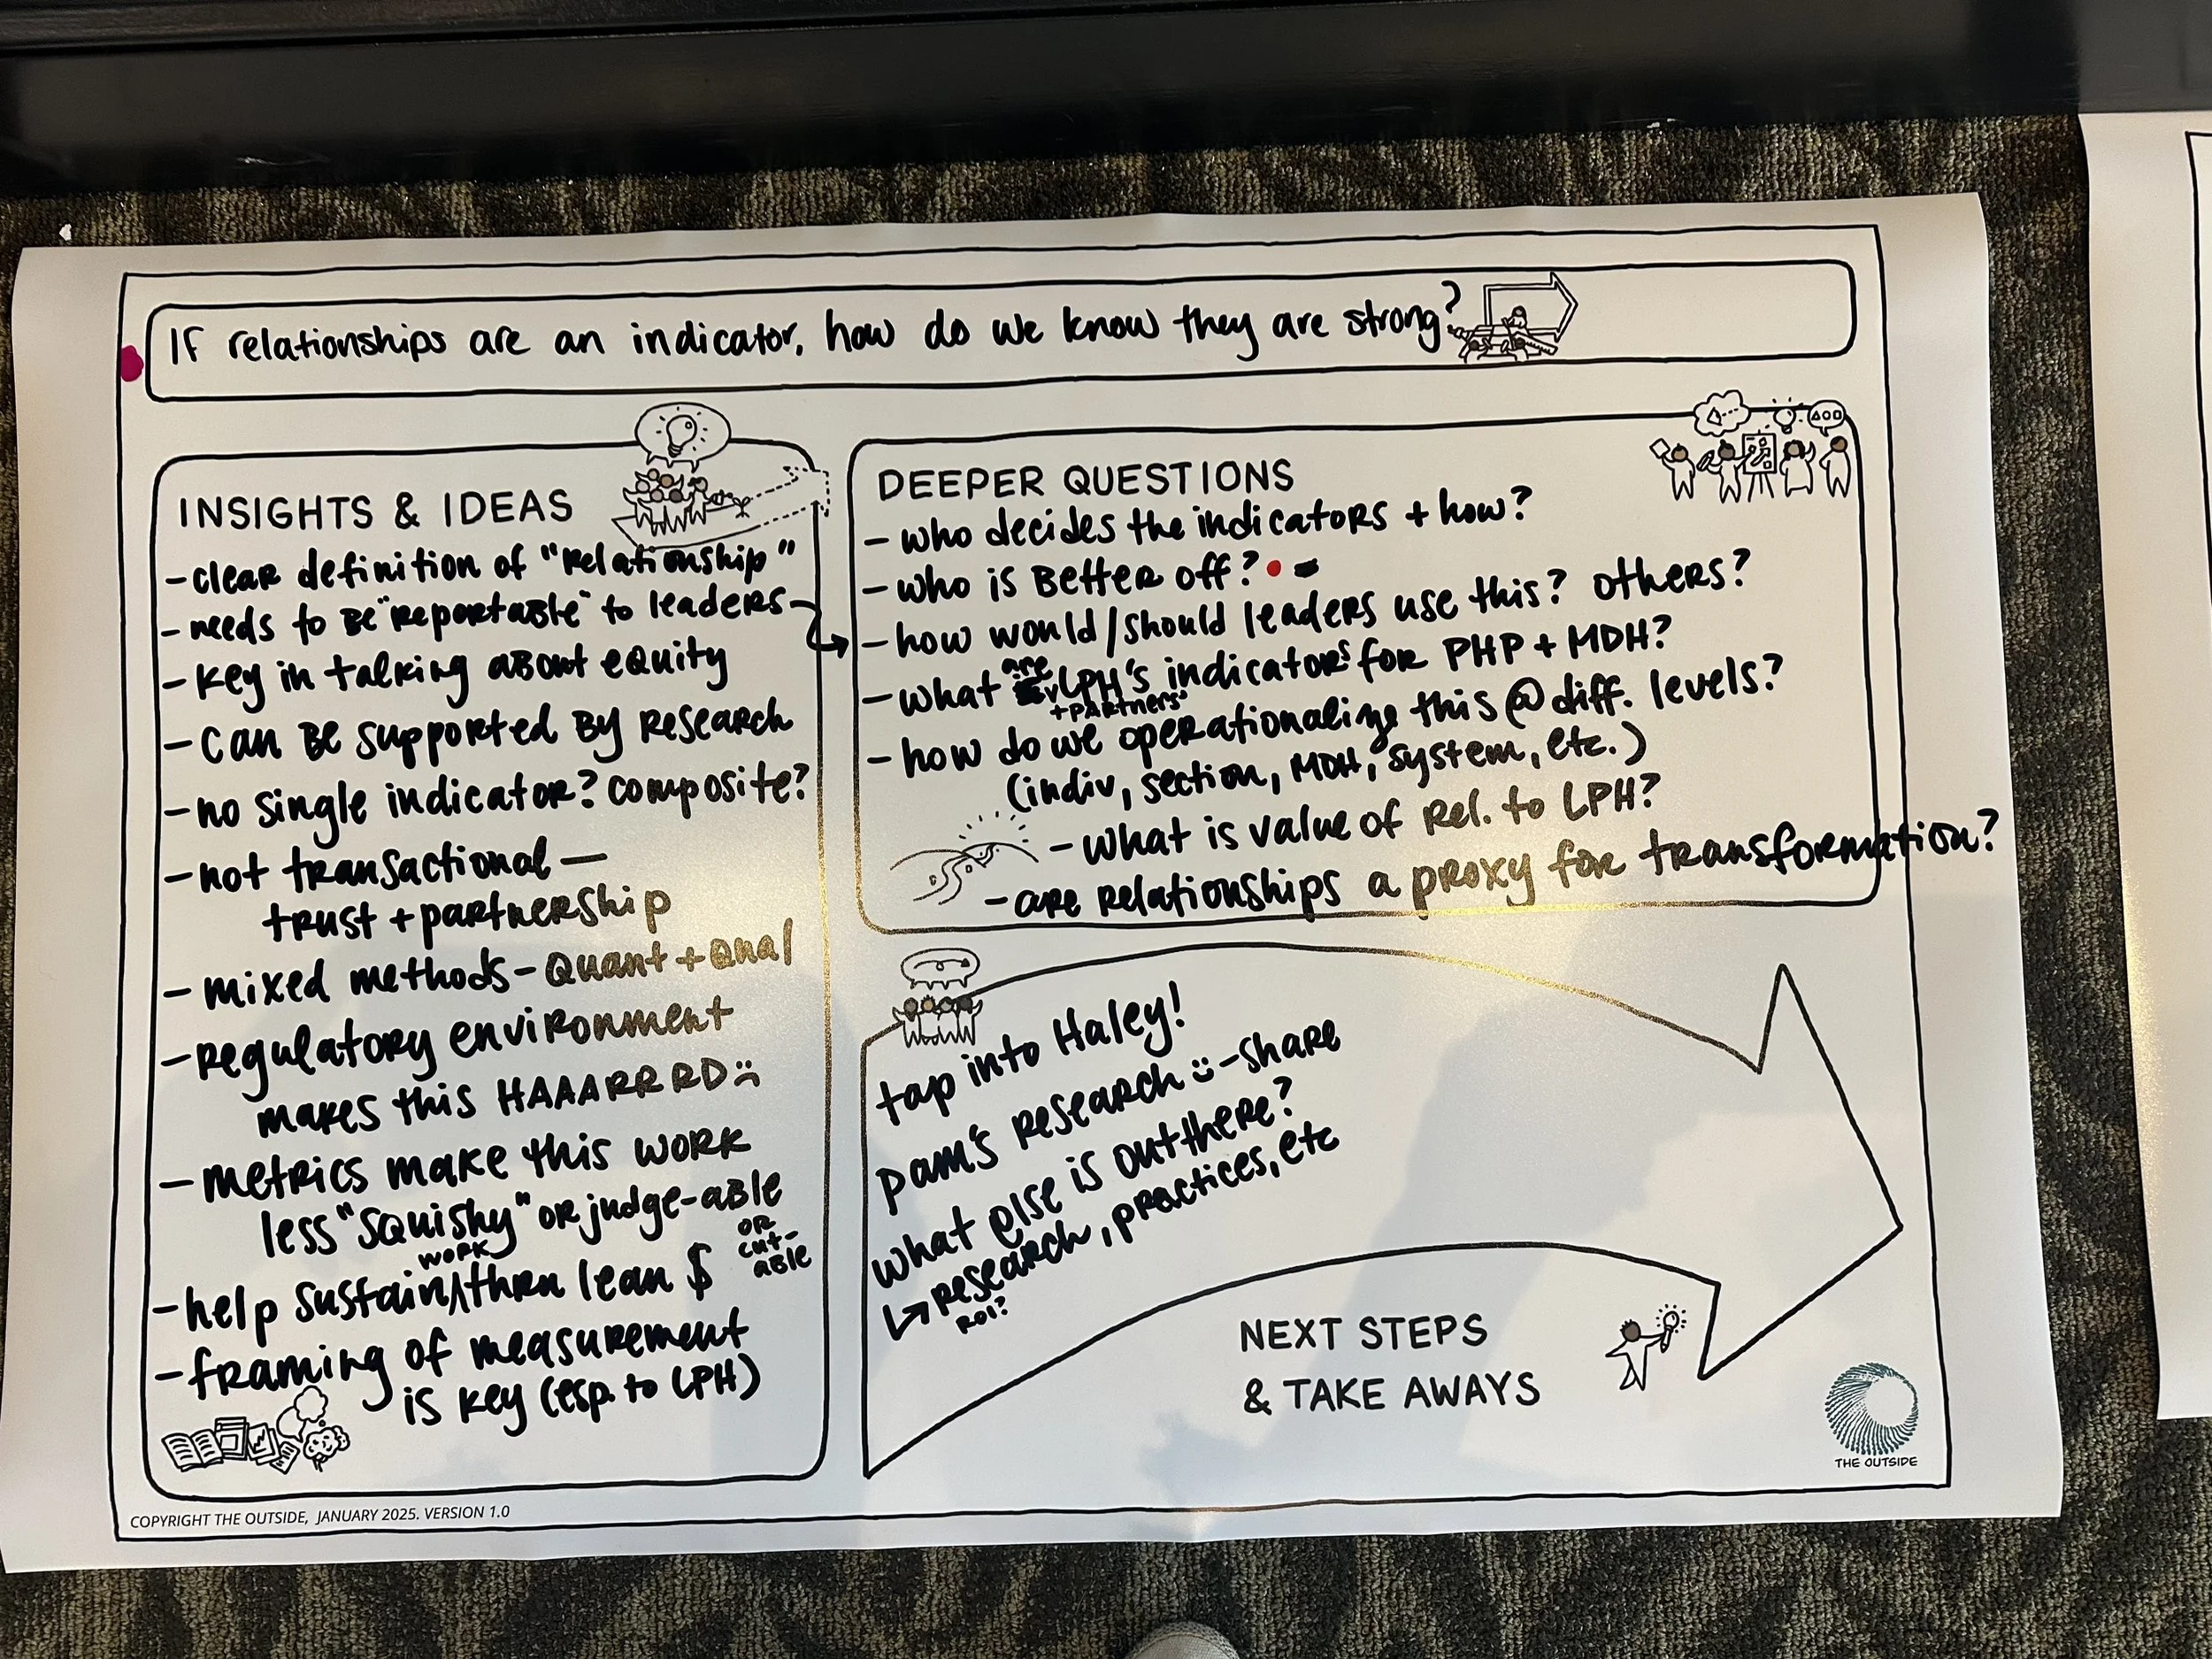 If relationships are an indicator, how do we know they are strong?
INSIGHTS & IDEAS
- clear definition of "relationship"
- needs to be "reportable" to leaders
- key in talking about equity
- can be supported by research
- no single indicator? composite?
- not transactional —
trust + partnership
- mixed methods - Quant + Qual
- regulatory environment
makes this HAAARRRD :(
- metrics make this work
less "squishy" or judge-able
or
cut-
able
- help sustain work thru lean $
- framing of measurement
is key (esp. to LPH)
DEEPER QUESTIONS
- who decides the indicators + how?
- who is better off?
- how would/should leaders use this? others?
- what are LPH's + partners' indicators for PHP + MDH?
- how do we operationalize this @ diff. levels?
(indiv, section, MDH, system, etc.)
- what is value of rel. to LPH?
- are relationships a proxy for transformation?
tap into Haley!
pam's research :) - share
what else is out there?
↳ research, practices, etc
ROI?
NEXT STEPS
& TAKE AWAYS
THE OUTSIDE
COPYRIGHT THE OUTSIDE, JANUARY 2025. VERSION 1.0